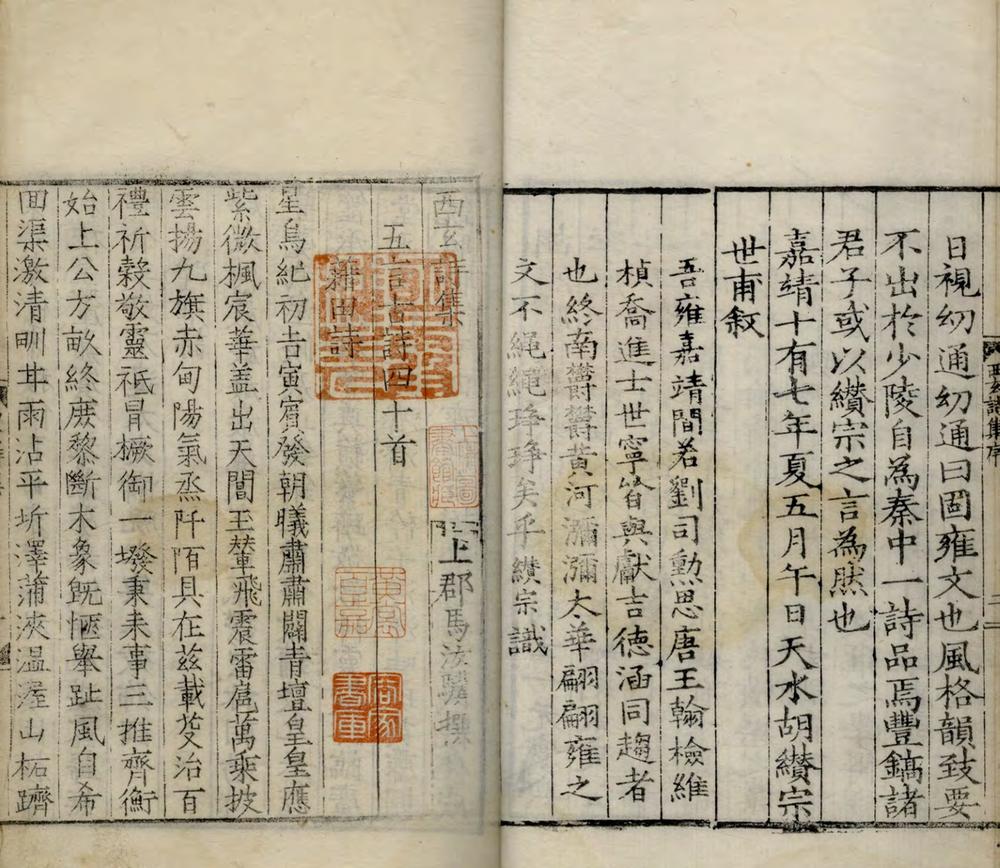 日視幼通幼通曰固雍文也風格韻致要
不出於少陵自為秦中一詩品焉豐鎬諸
君子或以纘宗之言為然也
嘉靖十有七年夏五月午日天水胡纘宗
世甫叙
吾雍嘉靖間若劉司勲思唐王翰檢維
楨喬進士世寧皆與獻吉德涵同趨者
也終南欝欝黄河瀰瀰太華翩翩雍之
文不繩繩琤琤矣乎纘宗識
西玄詩集
上郡馬汝驥撰
五言古詩四十首
藉田詩
星鳥紀初吉寅賓發朝曦肅肅闢青壇皇皇應
紫微楓宸華盖出天閶玉輦飛震雷扈萬乘披
雲揚九旗赤甸陽氣烝阡陌具在茲載芟治百
禮祈穀敬靈祗冒橛御一墢秉耒事三推齊衡
始上公方畝終庶黎斷木象既愜舉趾風自希
回渠激清甽甘雨沾平圻澤蒲浹温渥山柘躋
西玄詩集序